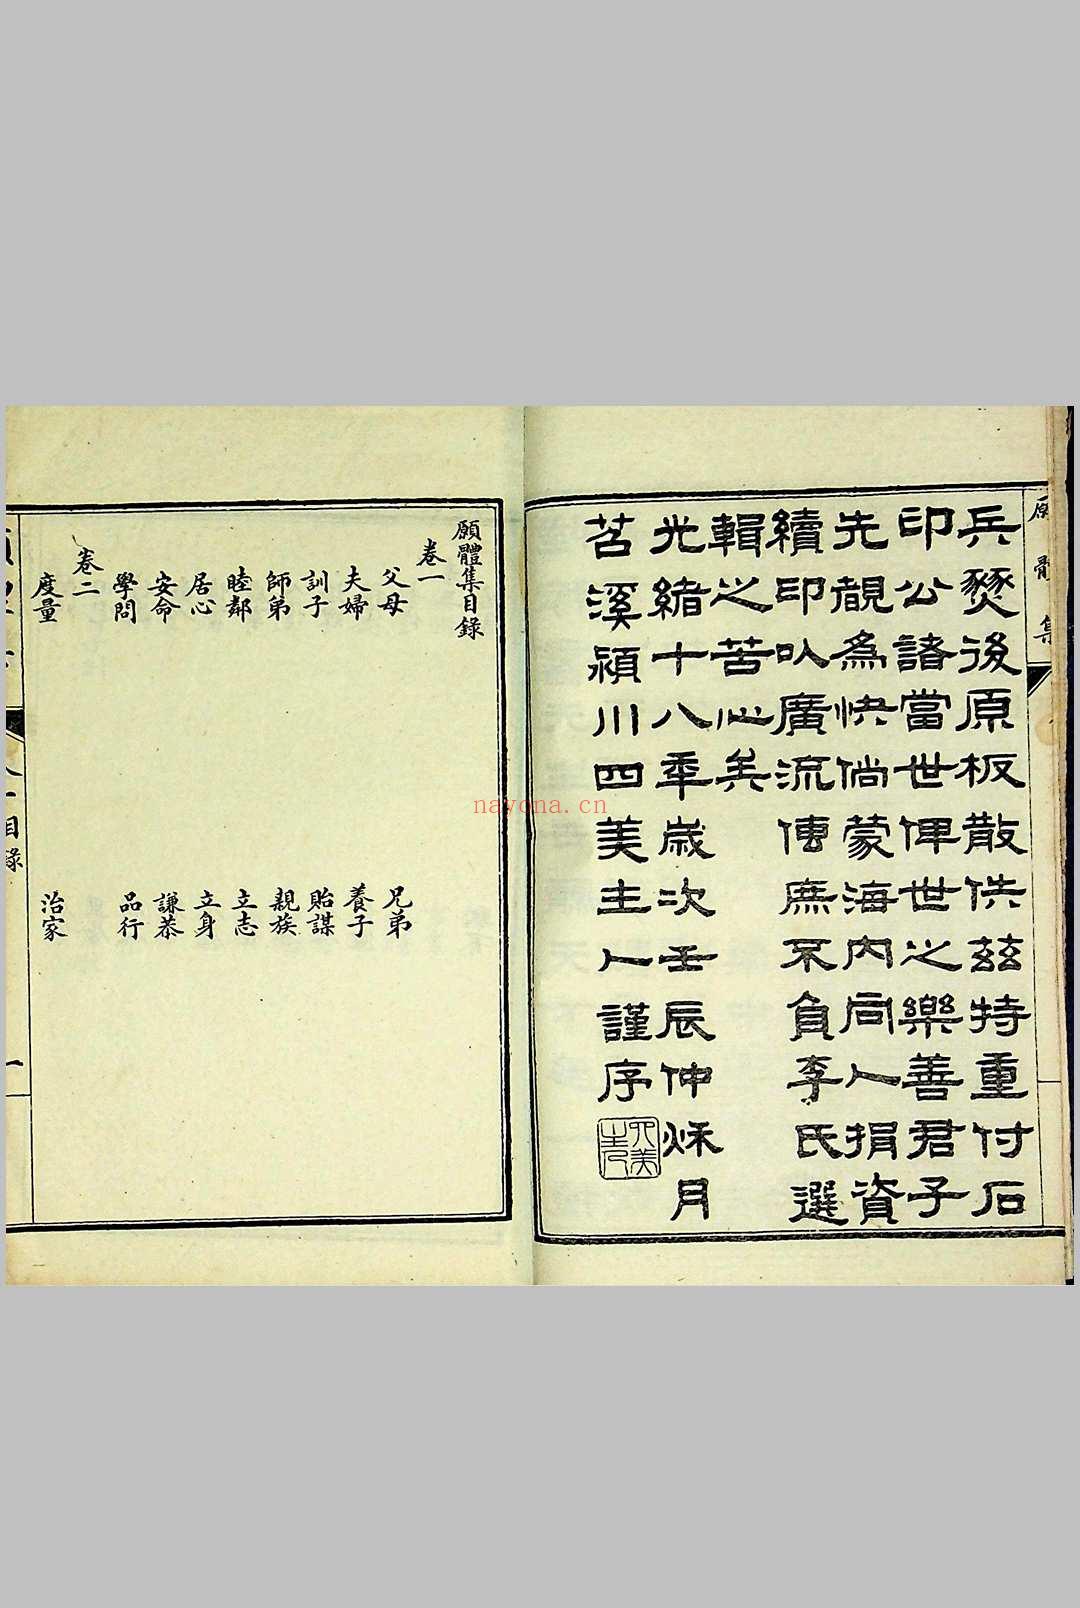 願體集
兵燹後原板散佚茲特重付石
印公諸當世俾世之樂善君子
先覩爲快倘蒙海內同人捐資
續印以廣流傳庶不負李氏選
輯之苦心矣
光緒十八年歲次壬辰仲秌月
苕溪潁川四美主人謹序
願體集目錄
卷一
父母 兄弟
夫婦 養子
訓子 貽謀
師弟 親族
睦鄰 立志
居心 立身
安命 謙恭
學問 品行
卷二
度量 治家
目錄
一
nayona.cn